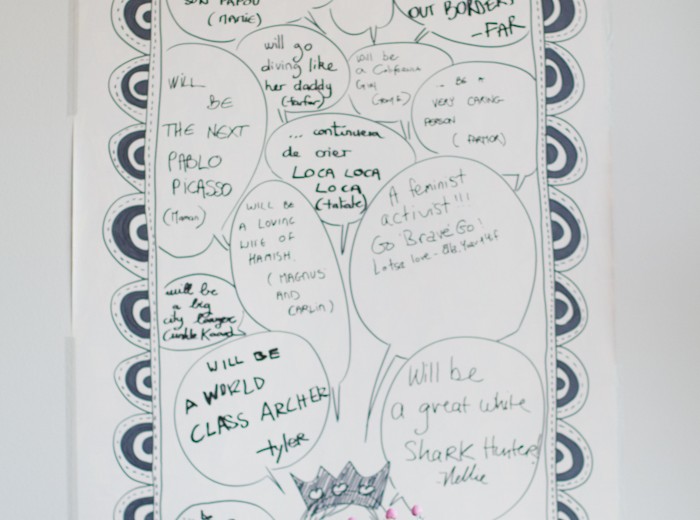 SON PAPOU
(MAMIE)
OUT BORDERS
-FAR
will go
diving like
her daddy
(farfar)
will be
a California
Girl
WILL
BE
THE NEXT
PABLO
PICASSO
(Maman)
BE A
VERY CARING
PERSON
(FARMOR)
... continuera
de crier
LOCA LOCA
LOCA
(tatate)
A feminist
activist!!!
Go Brave Go!
Lotsa love -
WILL BE
A LOVING
WIFE OF
HAMISH.
(MAGNUS
AND
CARLIN)
will be
a big
city lawyer
WILL BE
A WORLD
CLASS ARCHER
-tyler
Will be
a great white
Shark Hunter!
-Nellie
be